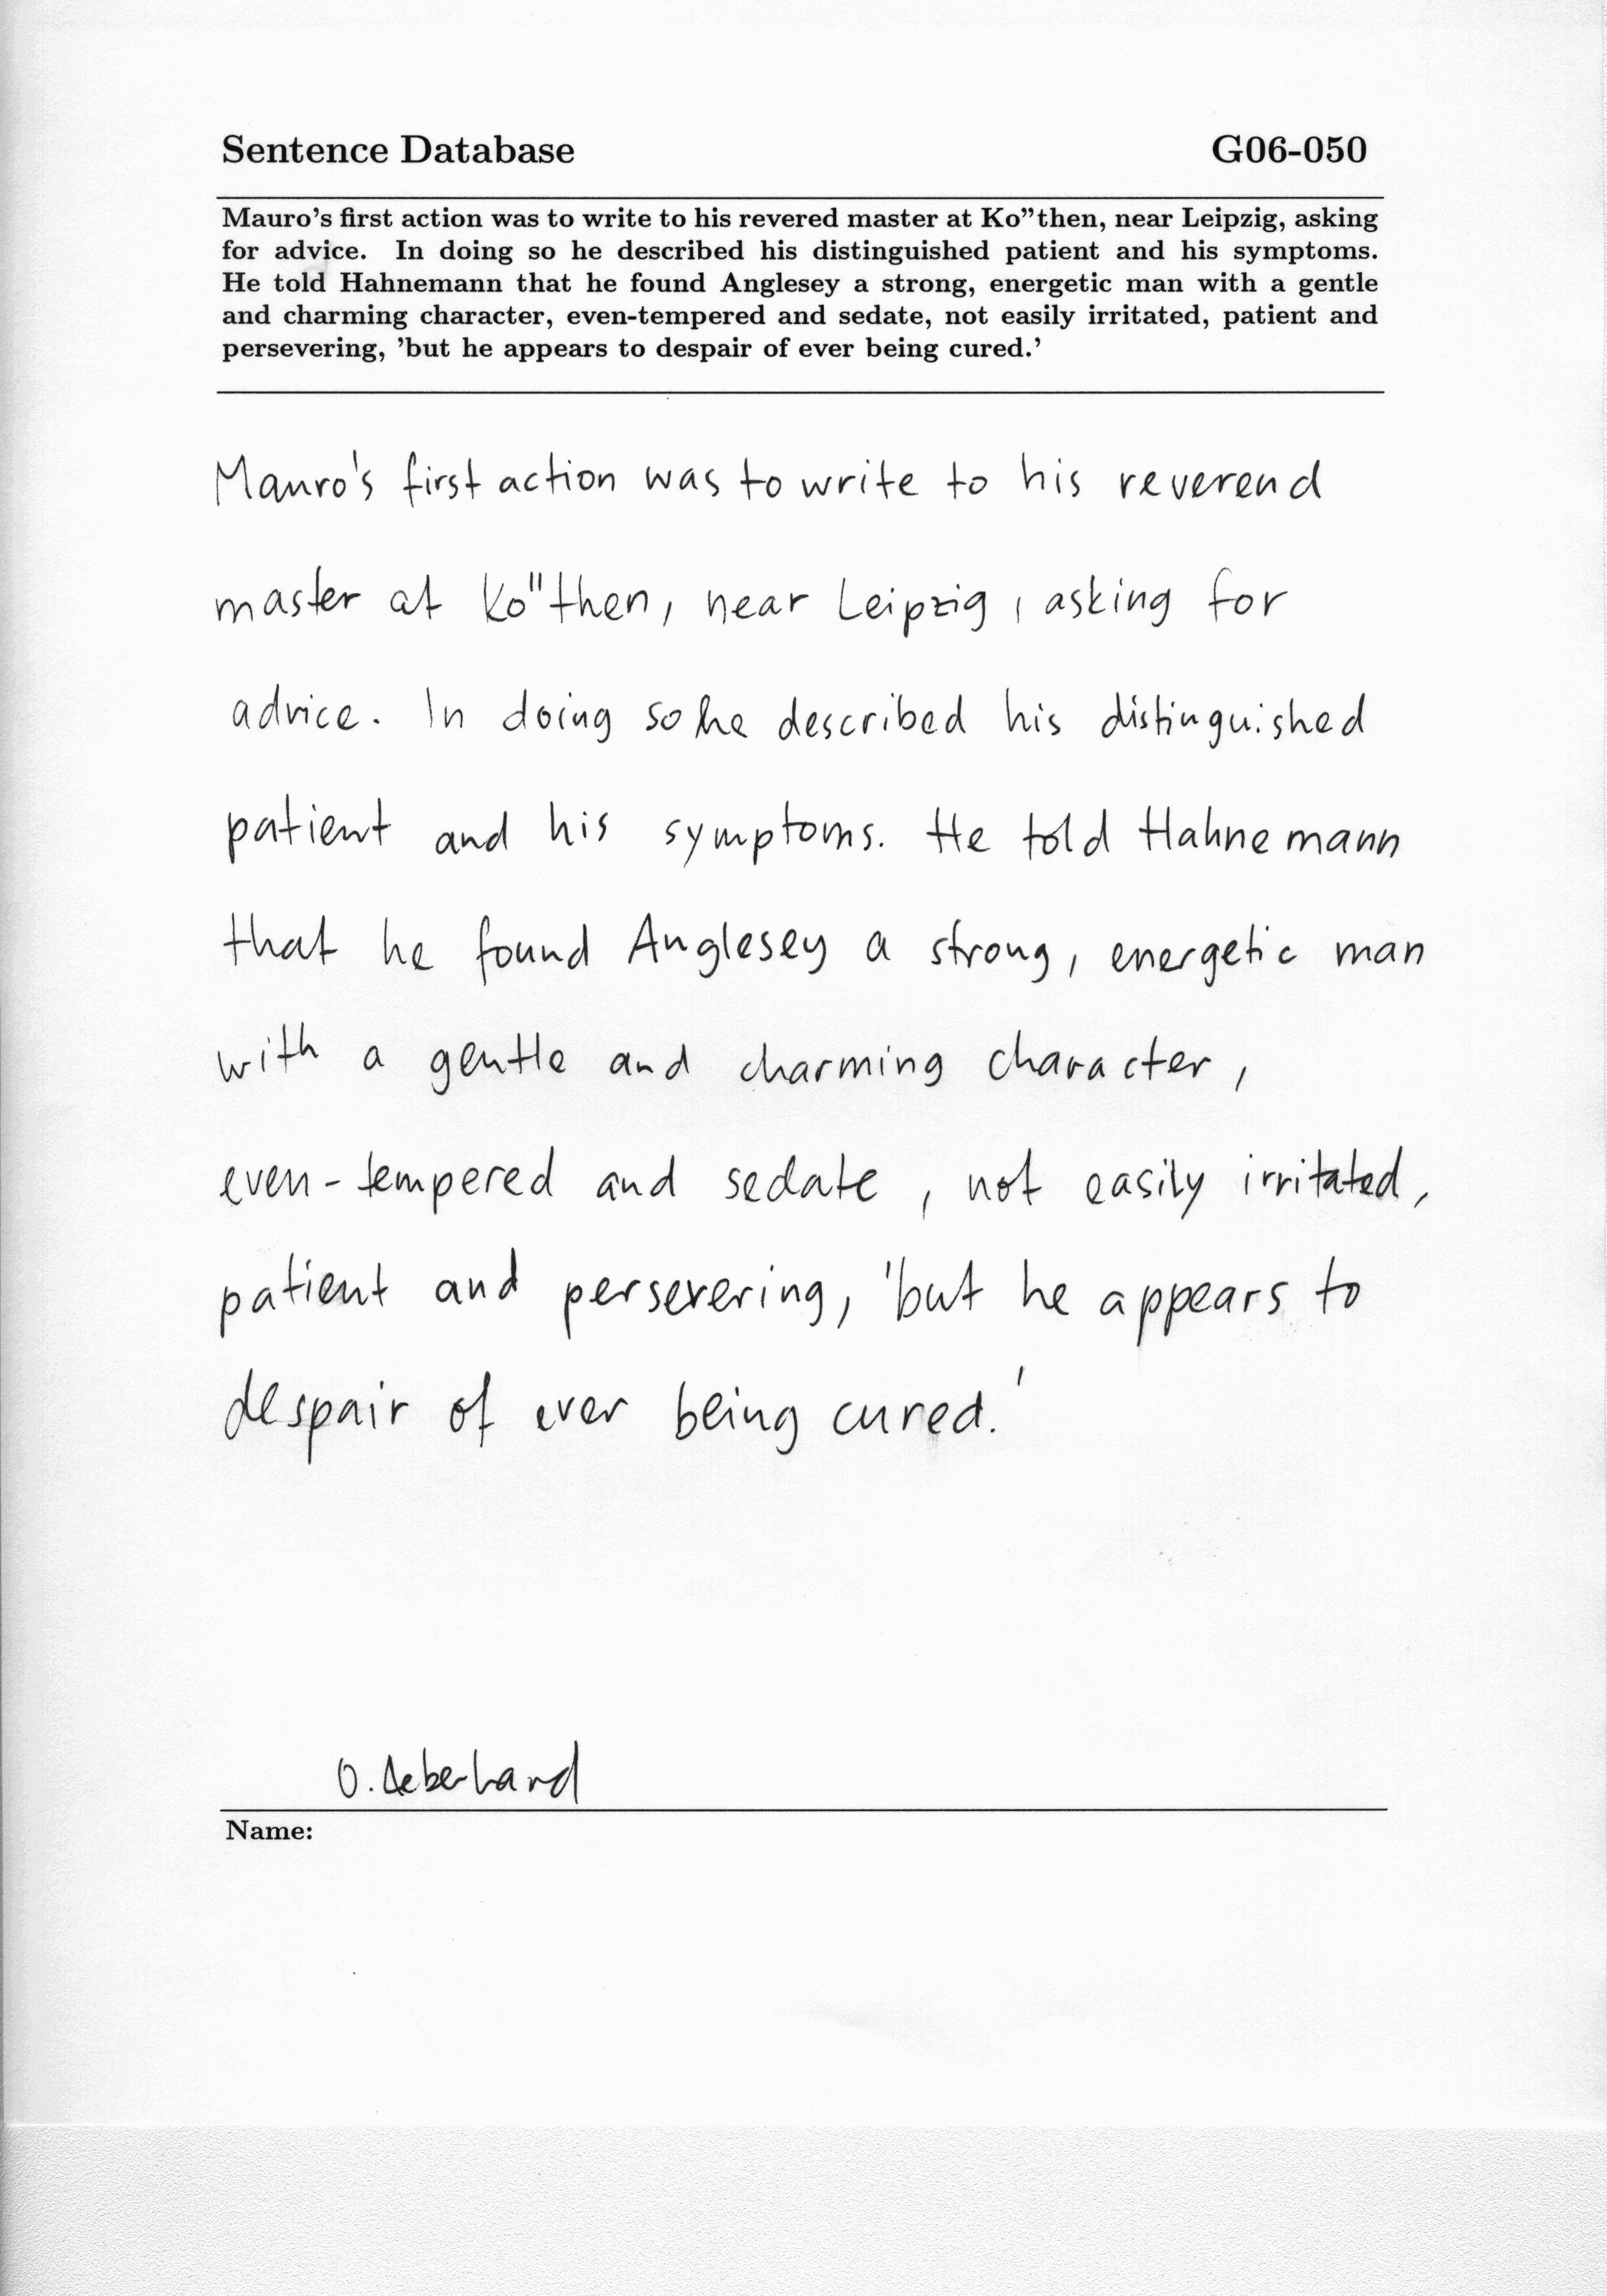 Sentence Database G06-050
Mauro's first action was to write to his revered master at Ko”then, near Leipzig, asking
for advice. In doing so he described his distinguished patient and his symptoms.
He told Hahnemann that he found Anglesey a strong, energetic man with a gentle
and charming character, even-tempered and sedate, not easily irritated, patient and
persevering, ’but he appears to despair of ever being cured.’
Mauro's first action was to write to his reverend
master at Ko"then, near Leipzig, asking for
advice. In doing so he described his distinguished
patient and his symptoms. He told Hahnemann
that he found Anglesey a strong, energetic man
with a gentle and charming character,
even-tempered and sedate, not easily irritated,
patient and persevering, 'but he appears to
despair of ever being cured.'
O. Aeberhard
Name: